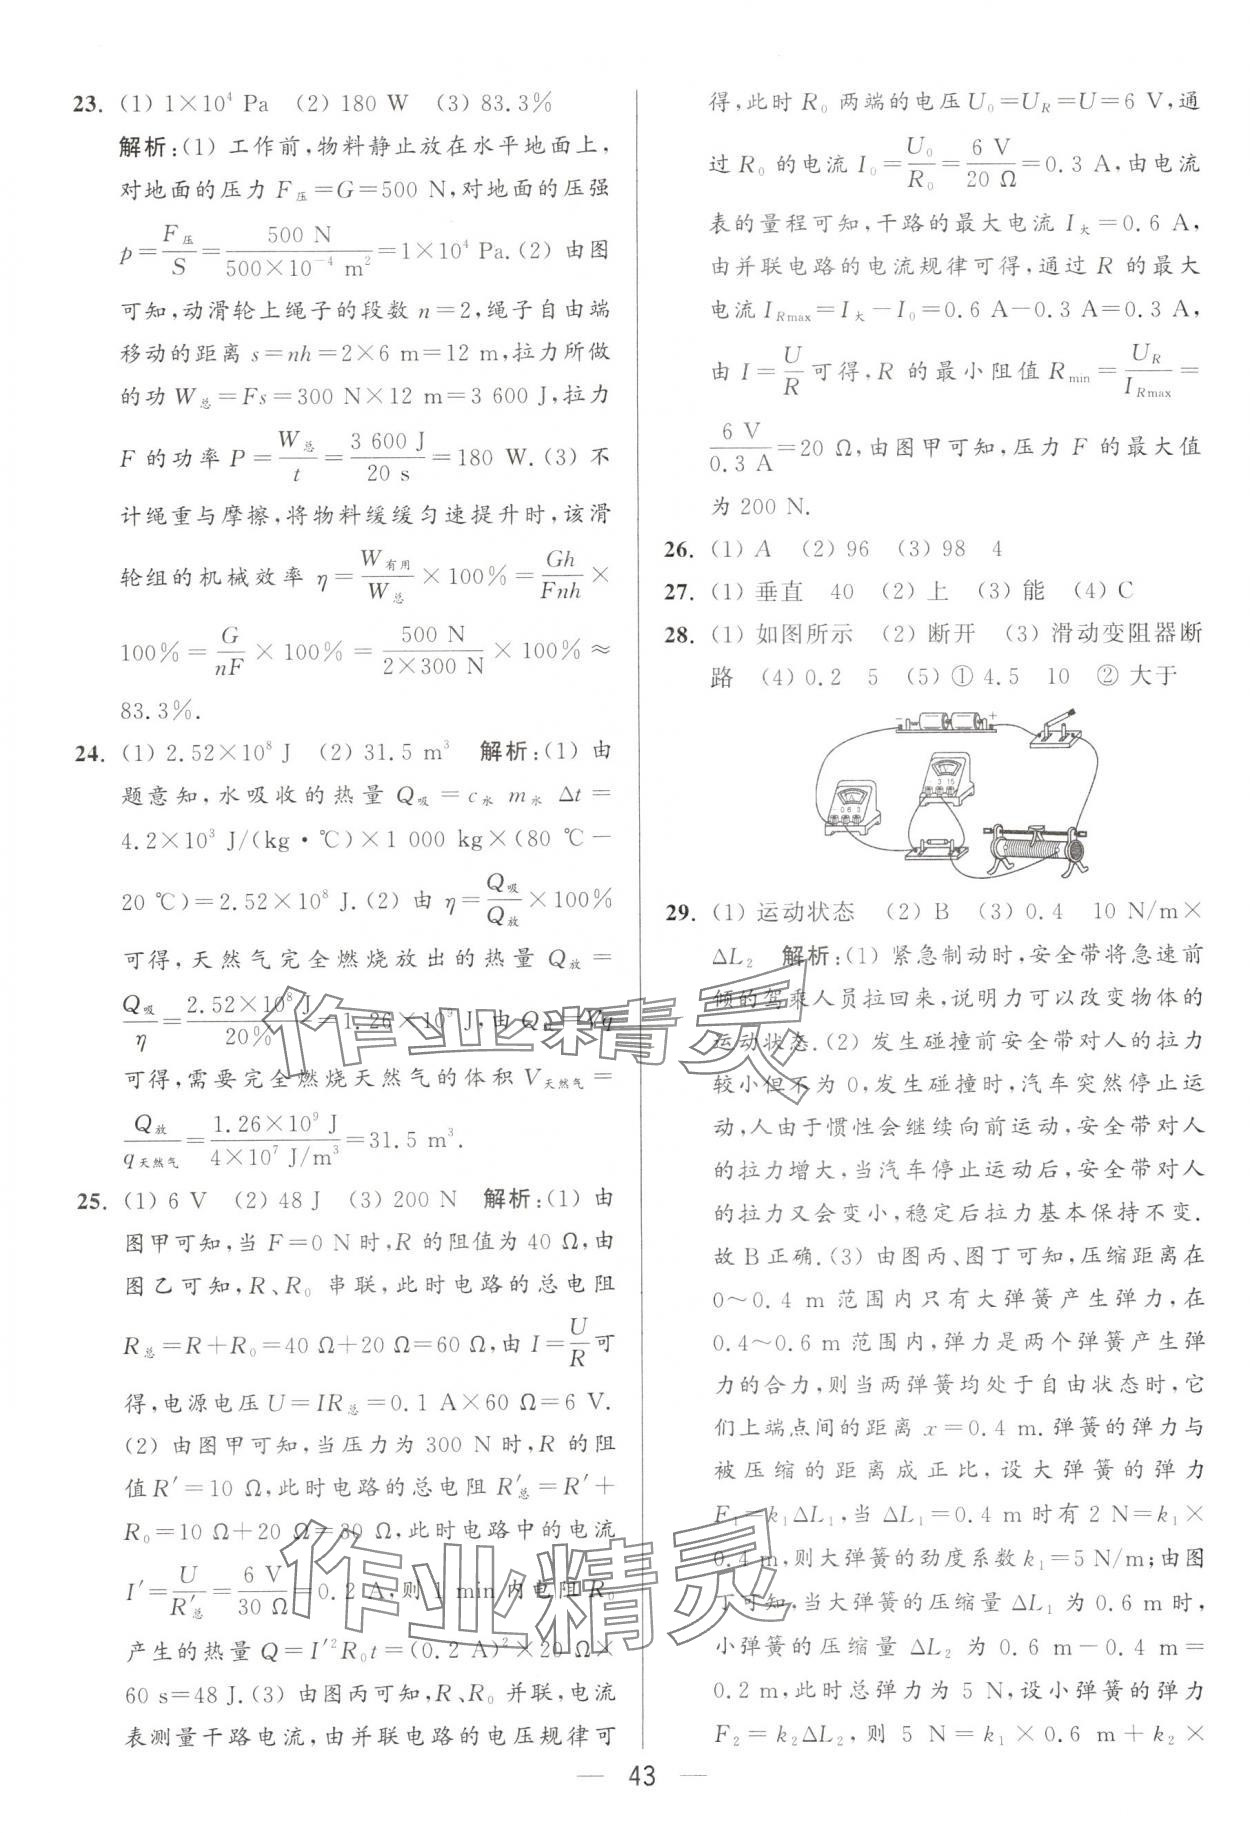 23. (1) 1×10⁴ Pa (2) 180 W (3) 83.3%
解析:(1) 工作前,物料静止放在水平地面上,
对地面的压力 F压=G=500 N,对地面的压强
p=F压/S=500 N/(500×10⁻⁴ m²)=1×10⁴ Pa.(2) 由图
可知,动滑轮上绳子的段数 n=2,绳子自由端
移动的距离 s=nh=2×6 m=12 m,拉力所做
的功 W总=Fs=300 N×12 m=3 600 J,拉力
F 的功率 P=W总/t=3 600 J/20 s=180 W.(3) 不
计绳重与摩擦,将物料缓缓匀速提升时,该滑
轮组的机械效率 η=W有用/W总×100%=Gh/Fnh×
100%=G/nF×100%=500 N/(2×300 N)×100%≈
83.3%.
24. (1) 2.52×10⁸ J (2) 31.5 m³ 解析:(1) 由
题意知,水吸收的热量 Q吸=c水 m水 Δt=
4.2×10³ J/(kg·℃)×1 000 kg×(80 ℃-
20 ℃)=2.52×10⁸ J.(2) 由 η=Q吸/Q放×100%
可得,天然气完全燃烧放出的热量 Q放=
Q吸/η=2.52×10⁸ J/20%=1.26×10⁹ J,由 Q放=Vq
可得,需要完全燃烧天然气的体积 V天然气=
Q放/q天然气=1.26×10⁹ J/(4×10⁷ J/m³)=31.5 m³.
25. (1) 6 V (2) 48 J (3) 200 N 解析:(1) 由
图甲可知,当 F=0 N 时,R 的阻值为 40 Ω,由
图乙可知,R、R₀ 串联,此时电路的总电阻
R总=R+R₀=40 Ω+20 Ω=60 Ω,由 I=U/R可
得,电源电压 U=IR总=0.1 A×60 Ω=6 V.
(2) 由图甲可知,当压力为 300 N 时,R 的阻
值R′=10 Ω,此时电路的总电阻 R′总=R′+
R₀=10 Ω+20 Ω=30 Ω,此时电路中的电流
I′=U/R′总=6 V/30 Ω=0.2 A,则 1 min 内电阻 R₀
产生的热量 Q=I′²R₀t=(0.2 A)²×20 Ω×
60 s=48 J.(3) 由图丙可知,R、R₀ 并联,电流
表测量干路电流,由并联电路的电压规律可
得,此时 R₀ 两端的电压 U₀=U_R=U=6 V,通
过 R₀ 的电流 I₀=U₀/R₀=6 V/20 Ω=0.3 A,由电流
表的量程可知,干路的最大电流 I大=0.6 A,
由并联电路的电流规律可得,通过 R 的最大
电流 I_Rmax=I大-I₀=0.6 A-0.3 A=0.3 A,
由 I=U/R可得,R 的最小阻值 R_min=U_R/I_Rmax=
6 V/0.3 A=20 Ω,由图甲可知,压力 F 的最大值
为 200 N.
26. (1) A (2) 96 (3) 98 4
27. (1) 垂直 40 (2) 上 (3) 能 (4) C
28. (1) 如图所示 (2) 断开 (3) 滑动变阻器断
路 (4) 0.2 5 (5) ① 4.5 10 ② 大于
- +
- 3 15
A
- 0.6 3
29. (1) 运动状态 (2) B (3) 0.4 10 N/m×
ΔL₂ 解析:(1) 紧急制动时,安全带将急速前
倾的驾乘人员拉回来,说明力可以改变物体的
运动状态.(2) 发生碰撞前安全带对人的拉力
较小但不为 0,发生碰撞时,汽车突然停止运
动,人由于惯性会继续向前运动,安全带对人
的拉力增大,当汽车停止运动后,安全带对人
的拉力又会变小,稳定后拉力基本保持不变.
故 B 正确.(3) 由图丙、图丁可知,压缩距离在
0~0.4 m 范围内只有大弹簧产生弹力,在
0.4~0.6 m 范围内,弹力是两个弹簧产生弹
力的合力,则当两弹簧均处于自由状态时,它
们上端点间的距离 x=0.4 m.弹簧的弹力与
被压缩的距离成正比,设大弹簧的弹力
F₁=k₁ΔL₁,当 ΔL₁=0.4 m 时有 2 N=k₁×
0.4 m,则大弹簧的劲度系数 k₁=5 N/m;由图
丁可知,当大弹簧的压缩量 ΔL₁ 为 0.6 m 时,
小弹簧的压缩量 ΔL₂ 为 0.6 m-0.4 m=
0.2 m,此时总弹力为 5 N,设小弹簧的弹力
F₂=k₂ΔL₂,则 5 N=k₁×0.6 m+k₂×
作业精灵
作业精灵
— 43 —